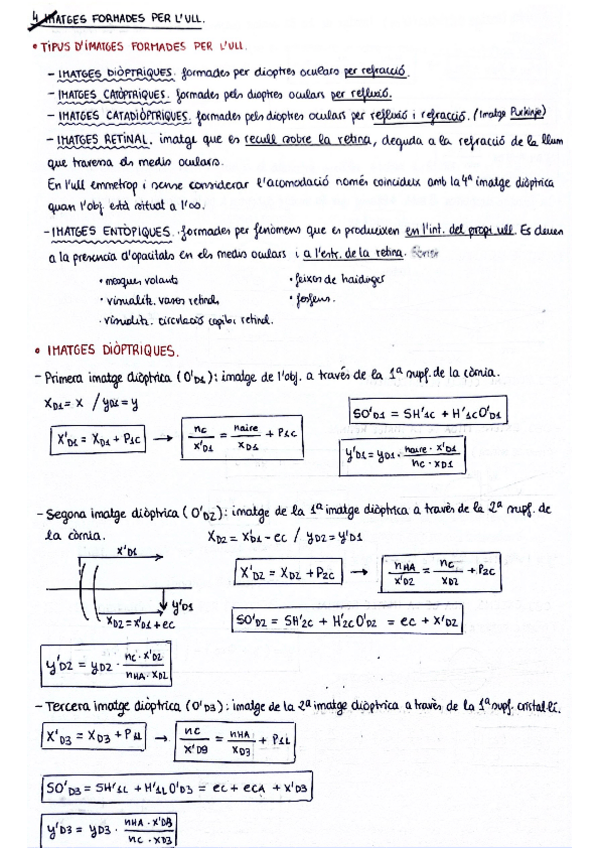 4 IMATGES FORMADES PER L'ULL.
• TIPUS D'IMATGES FORMADES PER L'ULL.
- IMATGES DIÒPTRIQUES. formades per dioptres oculars per refracció.
- IMATGES CATÒPTRIQUES. formades pels dioptres oculars per reflexió.
- IMATGES CATADIÒPTRIQUES. formades pels dioptres oculars per reflexió i refracció. (Imatge Purkinje)
- IMATGES RETINAL. imatge que es recull sobre la retina, deguda a la refracció de la llum
que travessa els medis oculars.
En l'ull emmetrop i sense considerar l'acomodació només coincideix amb la 4ª imatge diòptrica
quan l'obj. està situat a l'∞.
- IMATGES ENTÒPIQUES. formades per fenòmens que es produeixen en l'int. del propi ull. Es deuen
a la presència d'opacitats en els medis oculars i a l'estr. de la retina.
• mosques volants • feixos de haidinger
• visualitz. vasos retinals • fosfens.
• visualitz. circulació capil·l. retinal.
• IMATGES DIÒPTRIQUES.
- Primera imatge diòptrica (O'D1): imatge de l'obj. a través de la 1ª supf. de la còrnia.
XD1 = X / yD1 = y
SO'D1 = SH'1C + H'1CO'D1
X'D1 = XD1 + P1C → nc/x'D1 = naire/xD1 + P1C
y'D1 = yD1 · naire · x'D1 / nc · xD1
- Segona imatge diòptrica (O'D2): imatge de la 1ª imatge diòptrica a través de la 2ª supf. de
la còrnia. XD2 = X'D1 - ec / yD2 = y'D1
X'D1
X'D2 = XD2 + P2C → nHA/x'D2 = nc/xD2 + P2C
y'D1
XD2 = X'D1 + ec
SO'D2 = SH'2C + H'2CO'D2 = ec + X'D2
y'D2 = yD2 · nc · x'D2 / nHA · xD2
- Tercera imatge diòptrica (O'D3): imatge de la 2ª imatge diòptrica a través de la 1ª supf. cristal·lí.
X'D3 = XD3 + P1L → nc/x'D3 = nHA/xD3 + P1L
SO'D3 = SH'1L + H'1LO'D3 = ec + ecA + X'D3
y'D3 = yD3 · nHA · x'D3 / nc · xD3